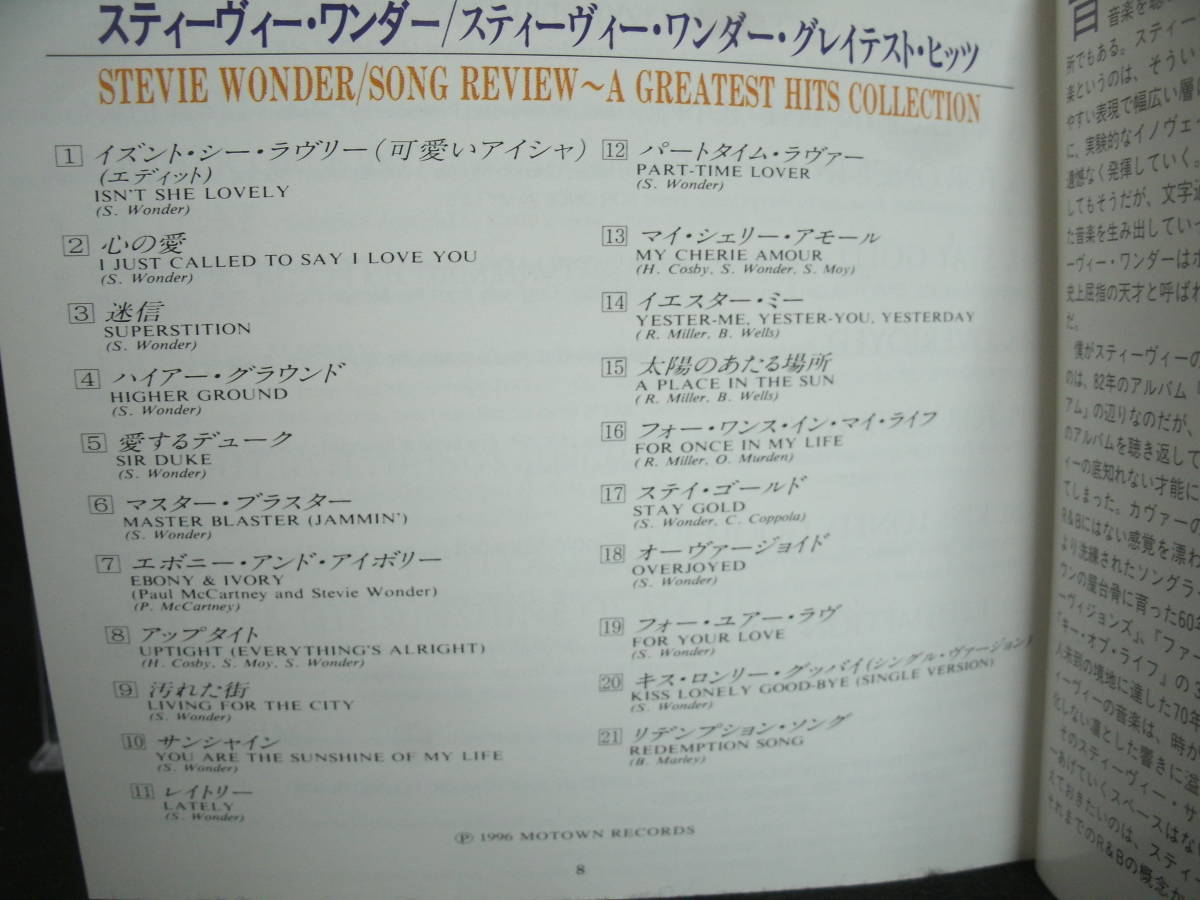 スティーヴィー・ワンダー/スティーヴィー・ワンダー・グレイテスト・ヒッツ
STEVIE WONDER/SONG REVIEW～A GREATEST HITS COLLECTION
1 イズント・シー・ラヴリー(可愛いアイシャ)
(エディット)
ISN'T SHE LOVELY
(S. Wonder)
2 心の愛
I JUST CALLED TO SAY I LOVE YOU
(S. Wonder)
3 迷信
SUPERSTITION
(S. Wonder)
4 ハイアー・グラウンド
HIGHER GROUND
(S. Wonder)
5 愛するデューク
SIR DUKE
(S. Wonder)
6 マスター・ブラスター
MASTER BLASTER (JAMMIN')
(S. Wonder)
7 エボニー・アンド・アイボリー
EBONY & IVORY
(Paul McCartney and Stevie Wonder)
(P. McCartney)
8 アップタイト
UPTIGHT (EVERYTHING'S ALRIGHT)
(H. Cosby, S. Moy, S. Wonder)
9 汚れた街
LIVING FOR THE CITY
(S. Wonder)
10 サンシャイン
YOU ARE THE SUNSHINE OF MY LIFE
(S. Wonder)
11 レイトリー
LATELY
(S. Wonder)
12 パートタイム・ラヴァー
PART-TIME LOVER
(S. Wonder)
13 マイ・シェリー・アモール
MY CHERIE AMOUR
(H. Cosby, S. Wonder, S. Moy)
14 イエスター・ミー
YESTER-ME, YESTER-YOU, YESTERDAY
(R. Miller, B. Wells)
15 太陽のあたる場所
A PLACE IN THE SUN
(R. Miller, B. Wells)
16 フォー・ワンス・イン・マイ・ライフ
FOR ONCE IN MY LIFE
(R. Miller, O. Murden)
17 ステイ・ゴールド
STAY GOLD
(S. Wonder, C. Coppola)
18 オーヴァージョイド
OVERJOYED
(S. Wonder)
19 フォー・ユアー・ラヴ
FOR YOUR LOVE
(S. Wonder)
20 キス・ロンリー・グッバイ(シングル・ヴァージョン)
KISS LONELY GOOD-BYE (SINGLE VERSION)
(S. Wonder)
21 リデンプション・ソング
REDEMPTION SONG
(B. Marley)
Ⓟ 1996 MOTOWN RECORDS
8
所でもある。スティー
楽というのは、そうい
やすい表現で幅広い層に
に、実験的なイノヴェ
遺憾なく発揮していく。
してもそうだが、文字
た音楽を生み出してい
ーヴィー・ワンダーは
史上屈指の天才と呼ばれ
だ。
僕がスティーヴィーの
のは、82年のアルバム『
アム』の辺りなのだが、
のアルバムを聴き返して
ィーの底知れない才能に
てしまった。カヴァーの
R&Bにはない感覚を漂わ
より洗練されたソングラ
ウンの屋台骨に育った60年
ーヴィジョンズ』、『ファー
『キー・オブ・ライフ』の3
人未到の境地に達した70年
ィーヴィーの音楽は、時が
化しない凛とした響きに溢
そのスティーヴィー・サ
一あげていくスペースはな
えておきたいのは、スティー
それまでのR&Bの概念か